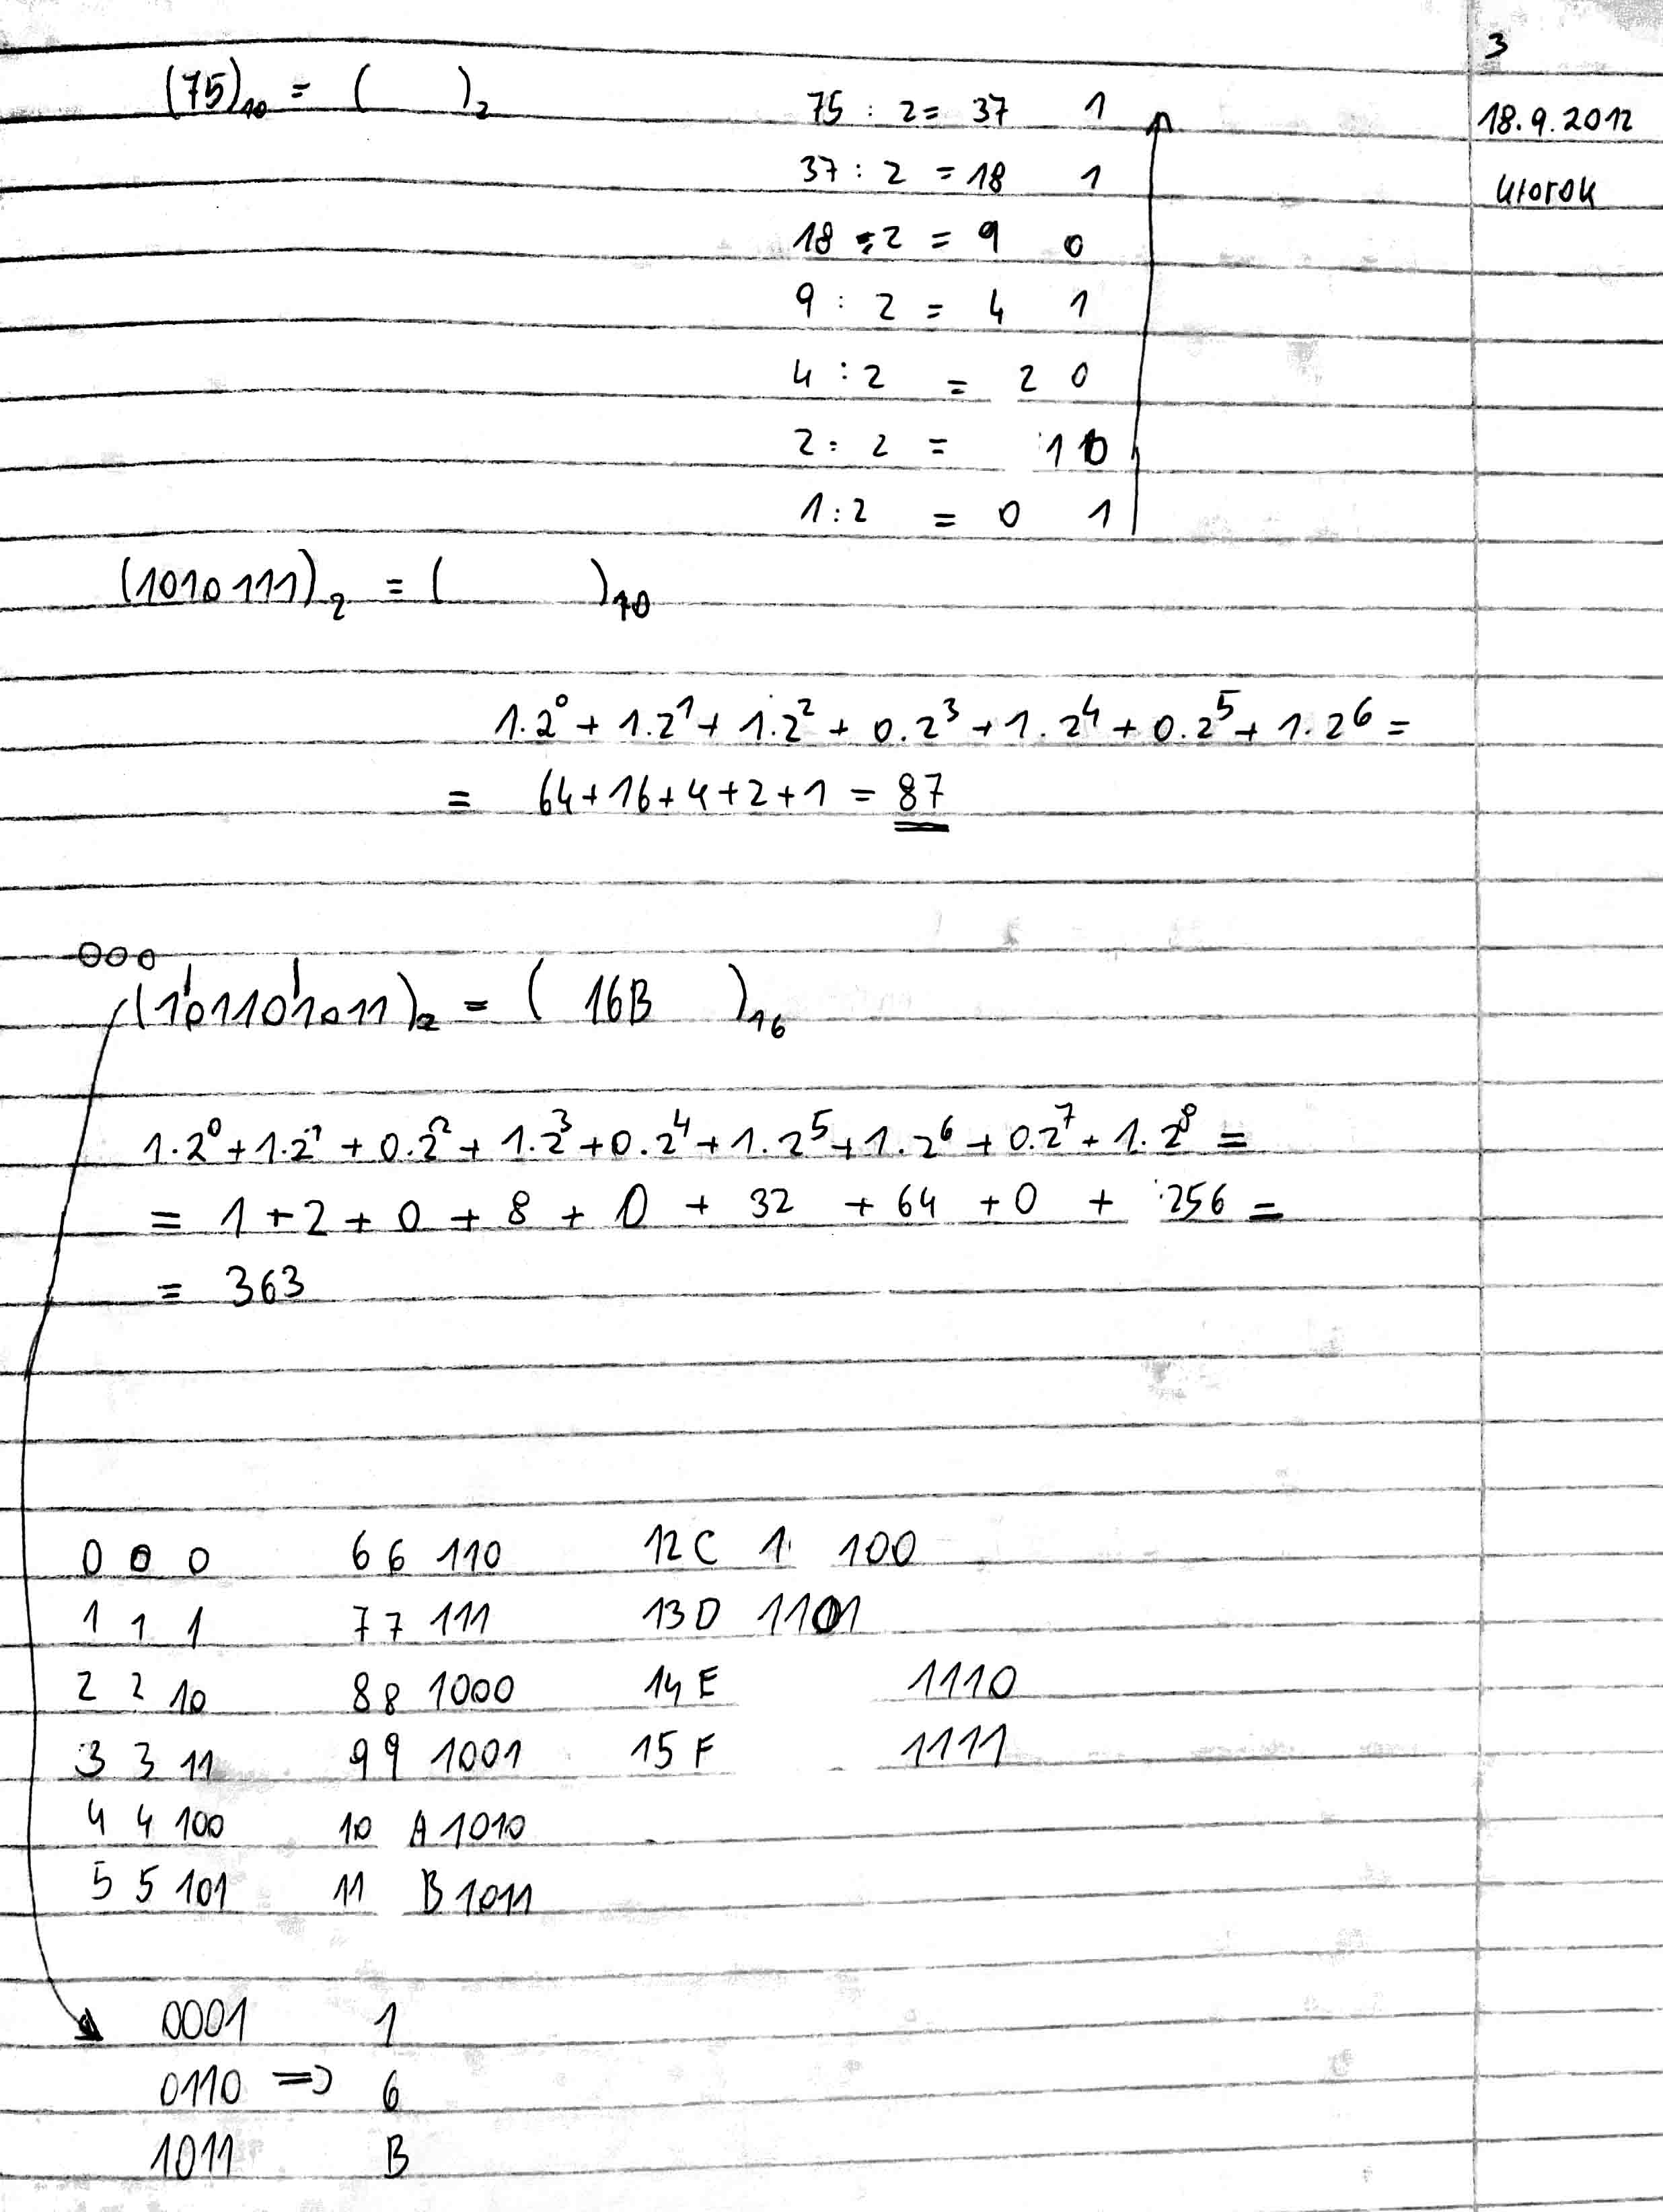 3
18.9.2012
utorok
(75)₁₀ = (    )₂
75 : 2 = 37 1
37 : 2 = 18 1
18 : 2 = 9 0
9 : 2 = 4 1
4 : 2 = 2 0
2 : 2 = 1 0
1 : 2 = 0 1
(1010111)₂ = (    )₁₀
1.2⁰ + 1.2¹ + 1.2² + 0.2³ + 1.2⁴ + 0.2⁵ + 1.2⁶ =
= 64+16+4+2+1 = 87
000
(101101011)₂ = ( 16B )₁₆
1.2⁰ + 1.2¹ + 0.2² + 1.2³ + 0.2⁴ + 1.2⁵ + 1.2⁶ + 0.2⁷ + 1.2⁸ =
= 1 + 2 + 0 + 8 + 0 + 32 + 64 + 0 + 256 =
= 363
0 0 0 6 6 110 12 C 1 100
1 1 1 7 7 111 13 D 1101
2 2 10 8 8 1000 14 E 1110
3 3 11 9 9 1001 15 F 1111
4 4 100 10 A 1010
5 5 101 11 B 1011
0001 1
0110 => 6
1011 B